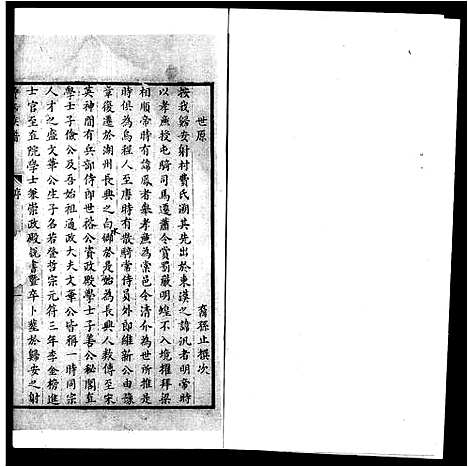 世原
裔孫止撰次
按我歸安射村費氏溯其先出於東漢之諱汎者明帝時
以孝廉授屯騎司馬遷蕭令賞罰嚴明蝗不入境擢拜梁
相順帝時有諱鳳者舉孝廉為棠邑令清介為世所推是
時俱為烏程人至唐時有散騎常侍員外郎維新公由豫
章復遷於湖州長興之白鄉於是始為長興人數傳至宋
英神間有兵部侍郎世裕公資政殿學士子善公秘閣直
學士子儉公及吾始祖通政大夫文華公皆稱一時同宗
人才之盛文華公生子名若登哲宗元符三年李金榜進
士官至直院學士兼崇政殿說書暨卒卜塟於歸安之射
譜
序